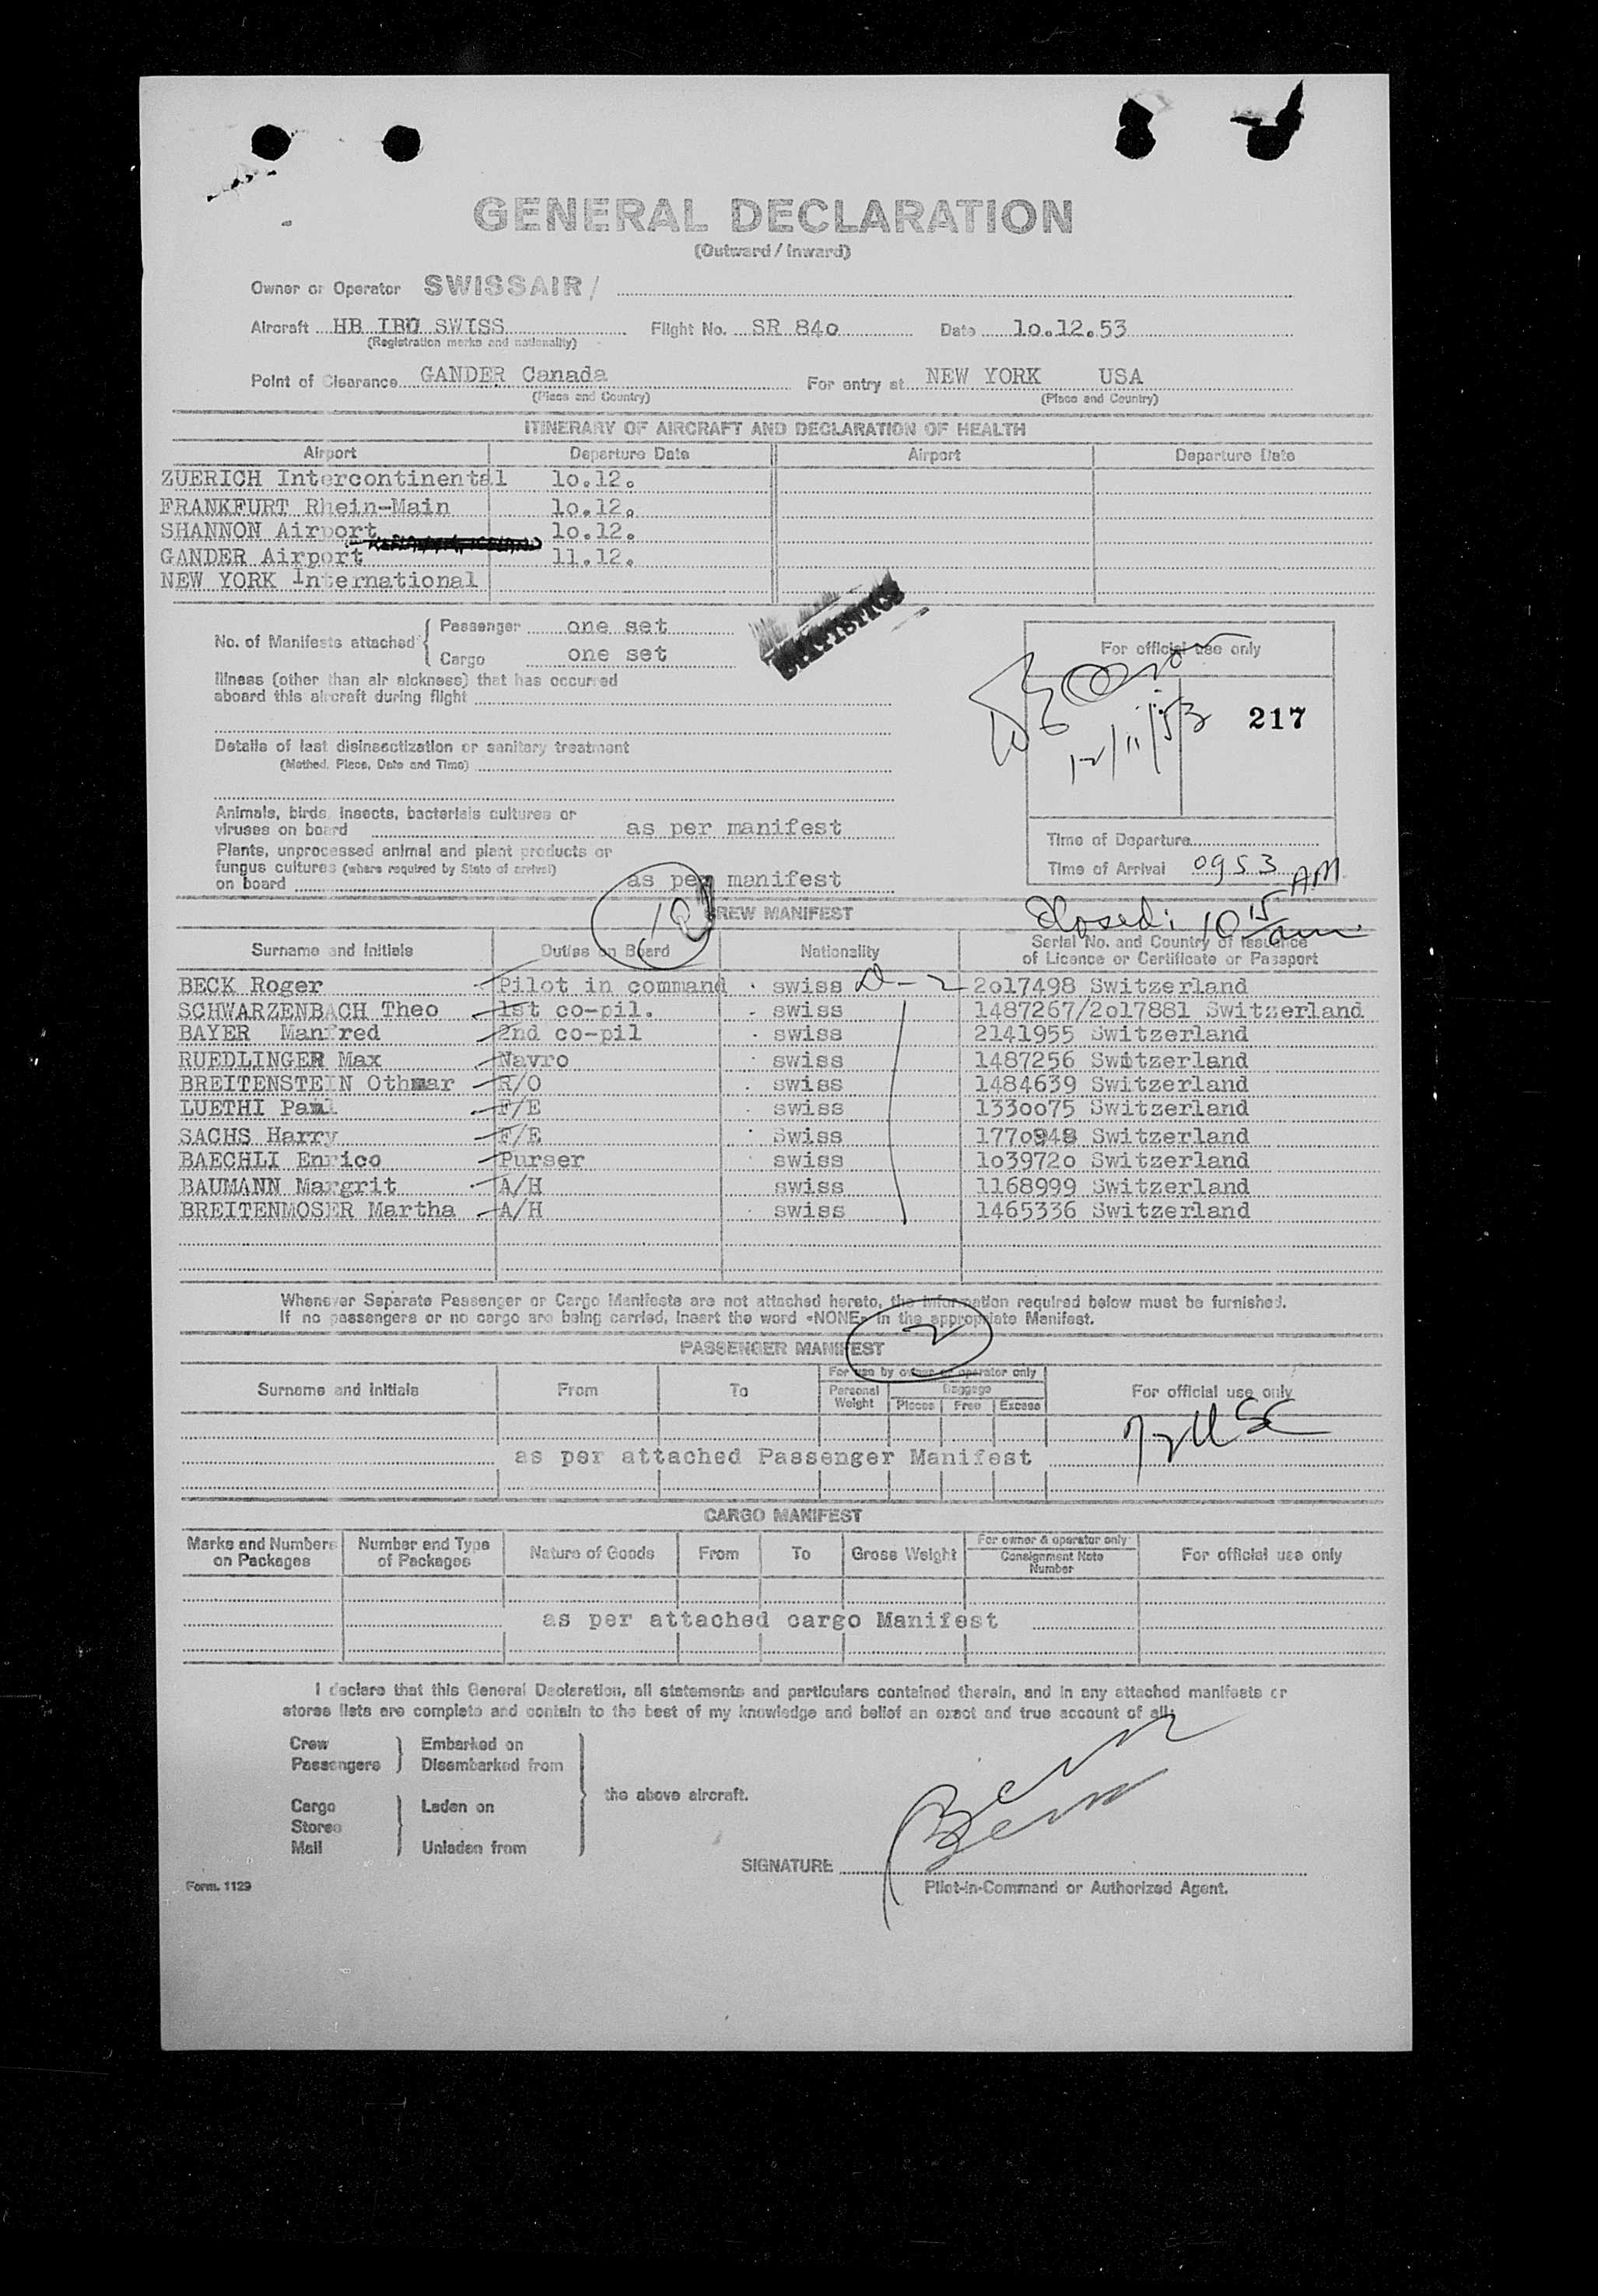 GENERAL DECLARATION
(Outward / Inward)
Owner or Operator SWISSAIR/
Aircraft HB IBU SWISS Flight No. SR 84o Date 1o.12.53
(Registration marks and nationality)
Point of Clearance GANDER Canada For entry at NEW YORK USA
(Place and Country) (Place and Country)
ITINERARY OF AIRCRAFT AND DECLARATION OF HEALTH
Airport Departure Date Airport Departure Date
ZUERICH Intercontinental 1o.12.
FRANKFURT Rhein-Main 1o.12.
SHANNON Airport 1o.12.
GANDER Airport 11.12.
NEW YORK International
STATISTICS
No. of Manifests attached { Passenger one set
Cargo one set
Illness (other than air sickness) that has occurred
aboard this aircraft during flight
Details of last disinsectization or sanitary treatment
(Method, Place, Date and Time)
Animals, birds, insects, bacterials cultures or
viruses on board as per manifest
Plants, unprocessed animal and plant products or
fungus cultures (where required by State of arrival)
on board as per manifest
For official use only
12/11/53
217
Time of Departure
Time of Arrival 0953 AM
Closed: 10 15 am.
10
CREW MANIFEST
Surname and Initials Duties on Board Nationality Serial No. and Country of Issuance
of Licence or Certificate or Passport
BECK Roger Pilot in command swiss D-2 2o17498 Switzerland
SCHWARZENBACH Theo 1st co-pil. swiss 1487267/2o17881 Switzerland
BAYER Manfred 2nd co-pil swiss 2141955 Switzerland
RUEDLINGER Max Navro swiss 1487256 Switzerland
BREITENSTEIN Othmar R/O swiss 1484639 Switzerland
LUETHI Paul F/E swiss 133oo75 Switzerland
SACHS Harry F/E Swiss 177o948 Switzerland
BAECHLI Enrico Purser swiss 1o3972o Switzerland
BAUMANN Margrit A/H swiss 1168999 Switzerland
BREITENMOSER Martha A/H swiss 1465336 Switzerland
Whenever Separate Passenger or Cargo Manifests are not attached hereto, the information required below must be furnished.
If no passengers or no cargo are being carried, insert the word «NONE» in the appropriate Manifest.
2
PASSENGER MANIFEST
Surname and Initials From To For use by owner or operator only For official use only
Personal Weight Baggage
Pieces Free Excess
as per attached Passenger Manifest
CARGO MANIFEST
Marks and Numbers on Packages Number and Type of Packages Nature of Goods From To Gross Weight For owner & operator only Consignment Note Number For official use only
as per attached cargo Manifest
I declare that this General Declaration, all statements and particulars contained therein, and in any attached manifests or
stores lists are complete and contain to the best of my knowledge and belief an exact and true account of all:
Crew } Embarked on
Passengers Disembarked from
the above aircraft.
Cargo } Laden on
Stores
Mail Unladen from
SIGNATURE
Pilot-in-Command or Authorized Agent.
Form. 1129